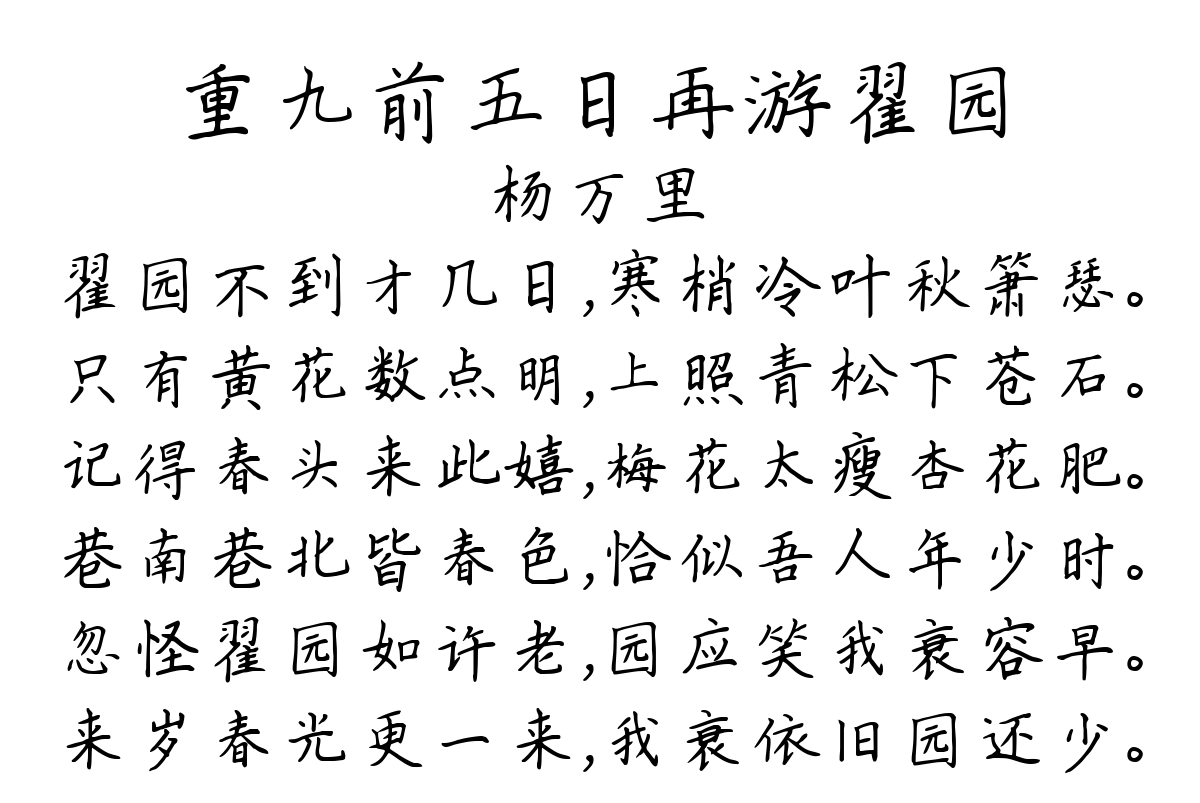 重九前五日再游翟园
杨万里
翟园不到才几日,寒梢冷叶秋箫瑟。
只有黄花数点明,上照青松下苍石。
记得春头来此嬉,梅花太瘦杏花肥。
巷南巷北皆春色,恰似吾人年少时。
忽怪翟园如许老,园应笑我衰容早。
来岁春光更一来,我衰依旧园还少。